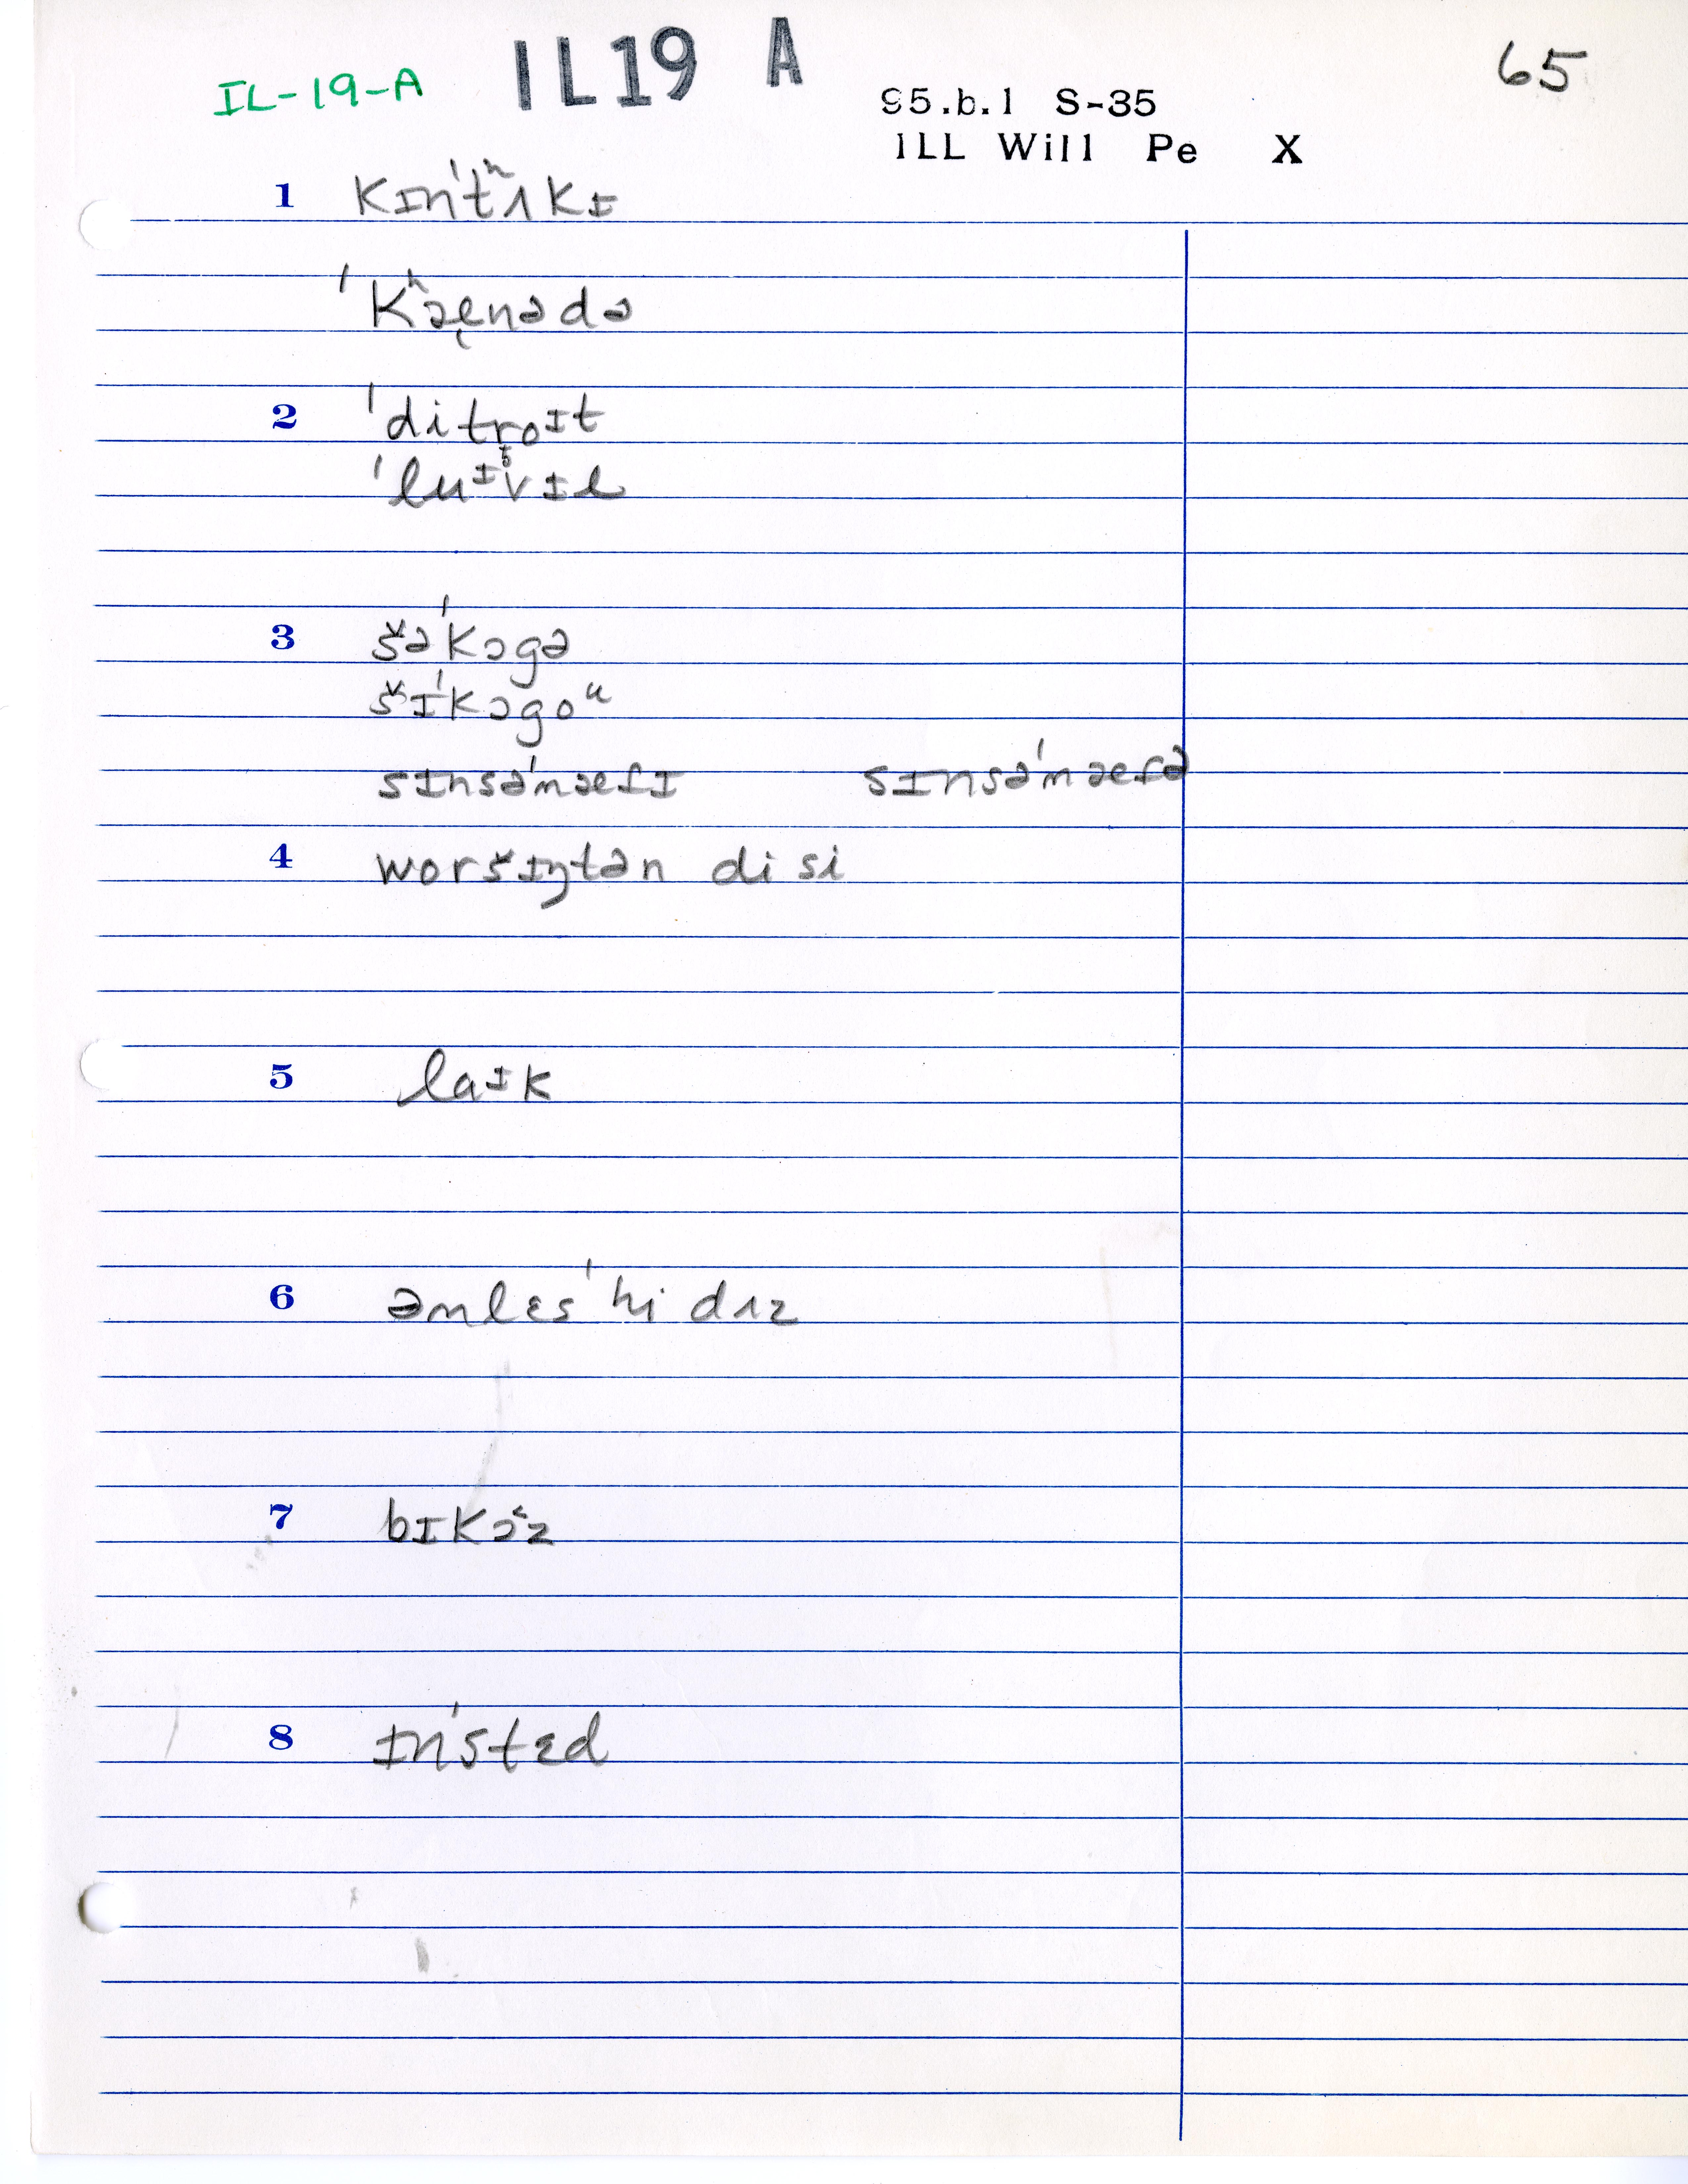 IL-19-A IL19 A 65
95.b.1 S-35
ILL Will Pe X
1 kɪnˈtʰʌkɪ
ˈkʰæ̨nədə
2 ˈditṛoɪt
ˈluɪvɪl
3 šəˈkɔgə
šɪˈkɔgoᵘ
sɪnsəˈnæfɪ sɪnsəˈnæfə
4 woršɪŋtən di si
5 laɪk
6 ənlɛsˈhi dʌz
7 bɪkɔ˂z
8 ɪnˈstɛd